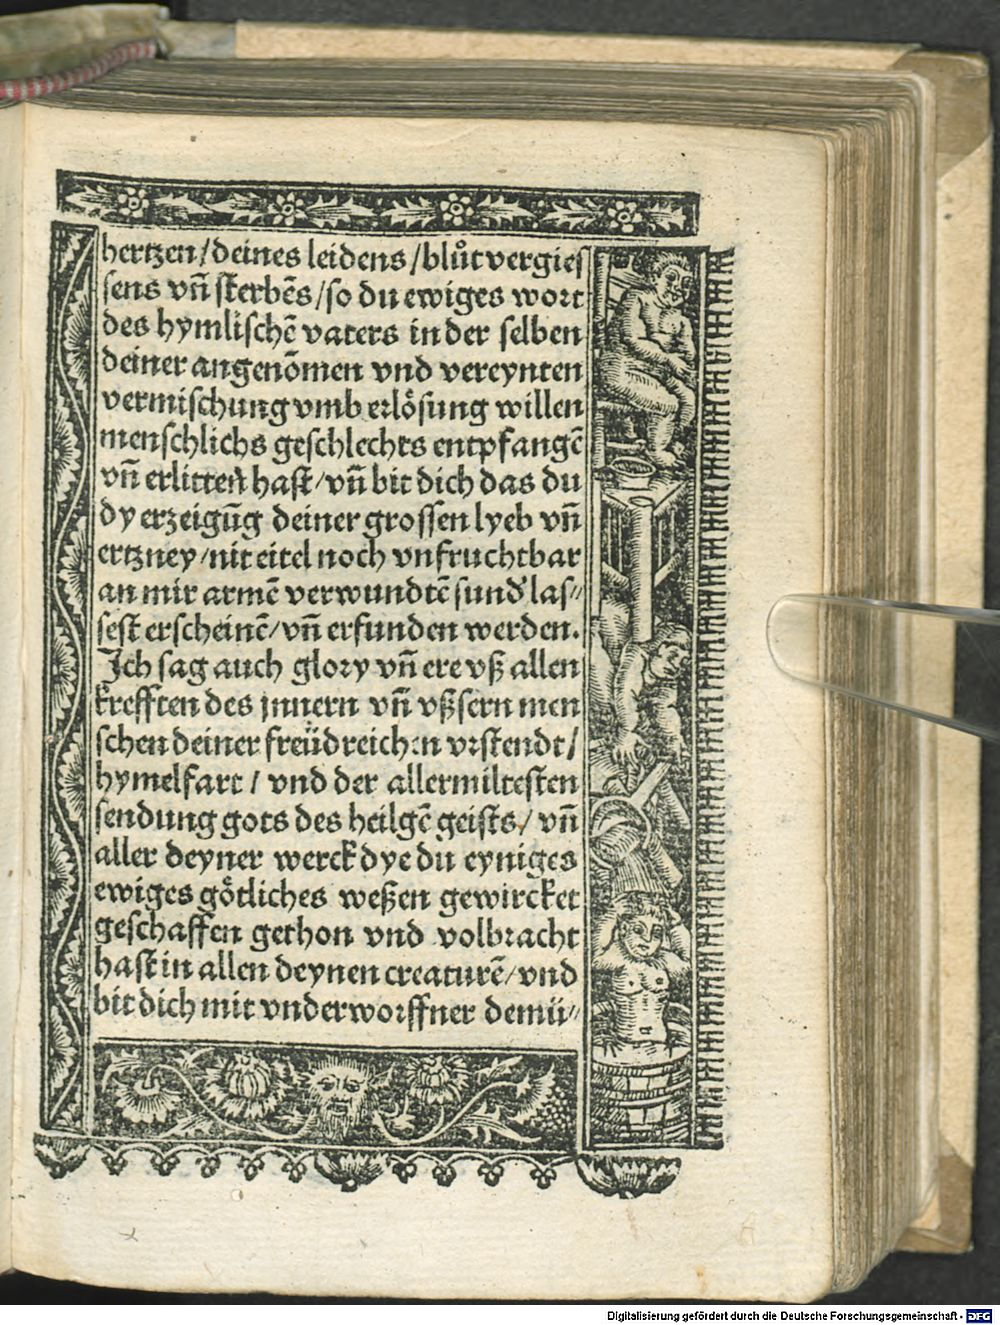 hertzen/deines leidens/blůtvergies
sens vn̄ sterbēs/so du ewiges wort
des hymlischē vaters in der selben
deiner angenōmen vnd vereynten
vermischung vmb erlösung willen
menschlichs geschlechts entpfangē
vn̄ erlitten hast/vn̄ bit dich das du
dy erzeigūg deiner grossen lyeb vn̄
ertzney/nit eitel noch vnfruchtbar
an mir armē verwundtē sund' las⸗
sest erscheinē/vn̄ erfunden werden.
Ich sag auch glory vn̄ ere vß allen
krefften des jnnern vn̄ vßsern men
schen deiner freüdreichen vrstendt/
hymelfart/ vnd der allermiltesten
sendung gots des heilgē geists/ vn̄
aller deyner werck dye du eyniges
ewiges götliches weßen gewircket
geschaffen gethon vnd volbracht
hast in allen deynen creaturē/vnd
bit dich mit vnderworffner demü⸗
Digitalisierung gefördert durch die Deutsche Forschungsgemeinschaft - DFG